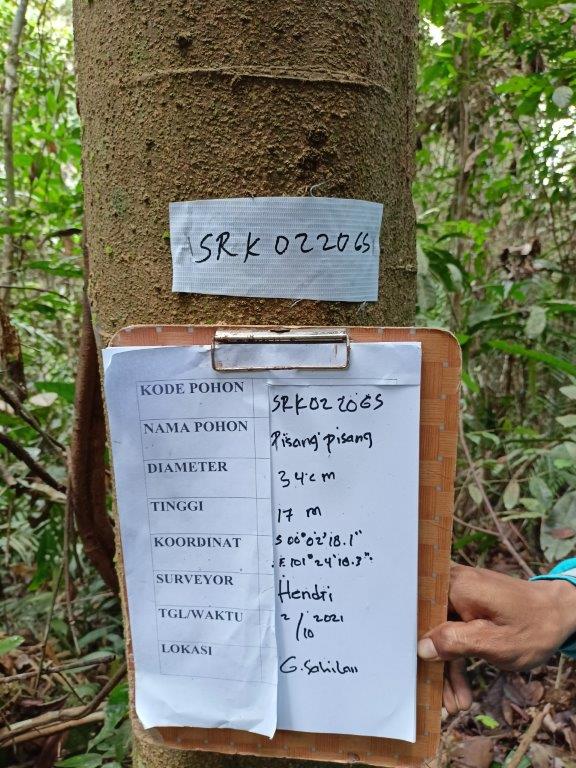 SRK02206S
KODE POHON SRK02206S
NAMA POHON Pisang pisang
DIAMETER 34 cm
TINGGI 17 m
KOORDINAT S 00°02'18.1"
E 101°24'18.3"
SURVEYOR Hendri
TGL/WAKTU 2/10 2021
LOKASI G. Sahilan